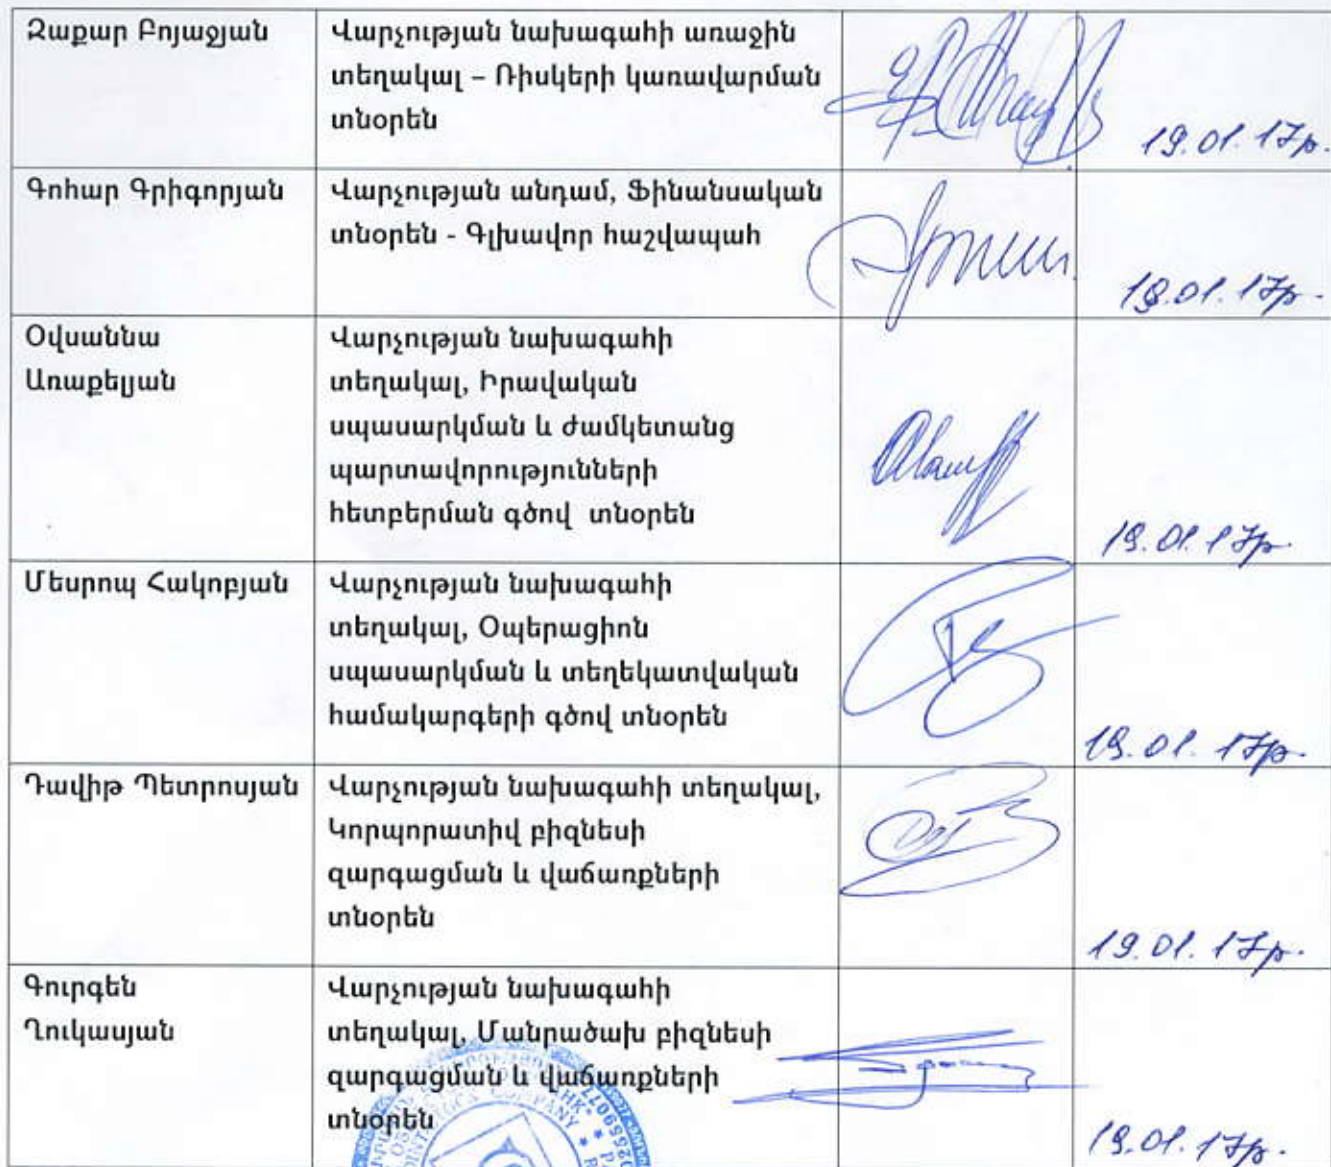 Զաքար Բոյաջյան
Վարչության նախագահի առաջին
տեղակալ – Ռիսկերի կառավարման
տնօրեն
19.01.17թ.
Գոհար Գրիգորյան
Վարչության անդամ, Ֆինանսական
տնօրեն - Գլխավոր հաշվապահ
19.01.17թ.
Օվսաննա
Առաքելյան
Վարչության նախագահի
տեղակալ, Իրավական
սպասարկման և ժամկետանց
պարտավորությունների
հետբերման գծով տնօրեն
19.01.17թ.
Մեսրոպ Հակոբյան
Վարչության նախագահի
տեղակալ, Օպերացիոն
սպասարկման և տեղեկատվական
համակարգերի գծով տնօրեն
19.01.17թ.
Դավիթ Պետրոսյան
Վարչության նախագահի տեղակալ,
Կորպորատիվ բիզնեսի
զարգացման և վաճառքների
տնօրեն
19.01.17թ.
Գուրգեն
Ղուկասյան
Վարչության նախագահի
տեղակալ, Մանրածախ բիզնեսի
զարգացման և վաճառքների
տնօրեն
19.01.17թ.
COMPANY